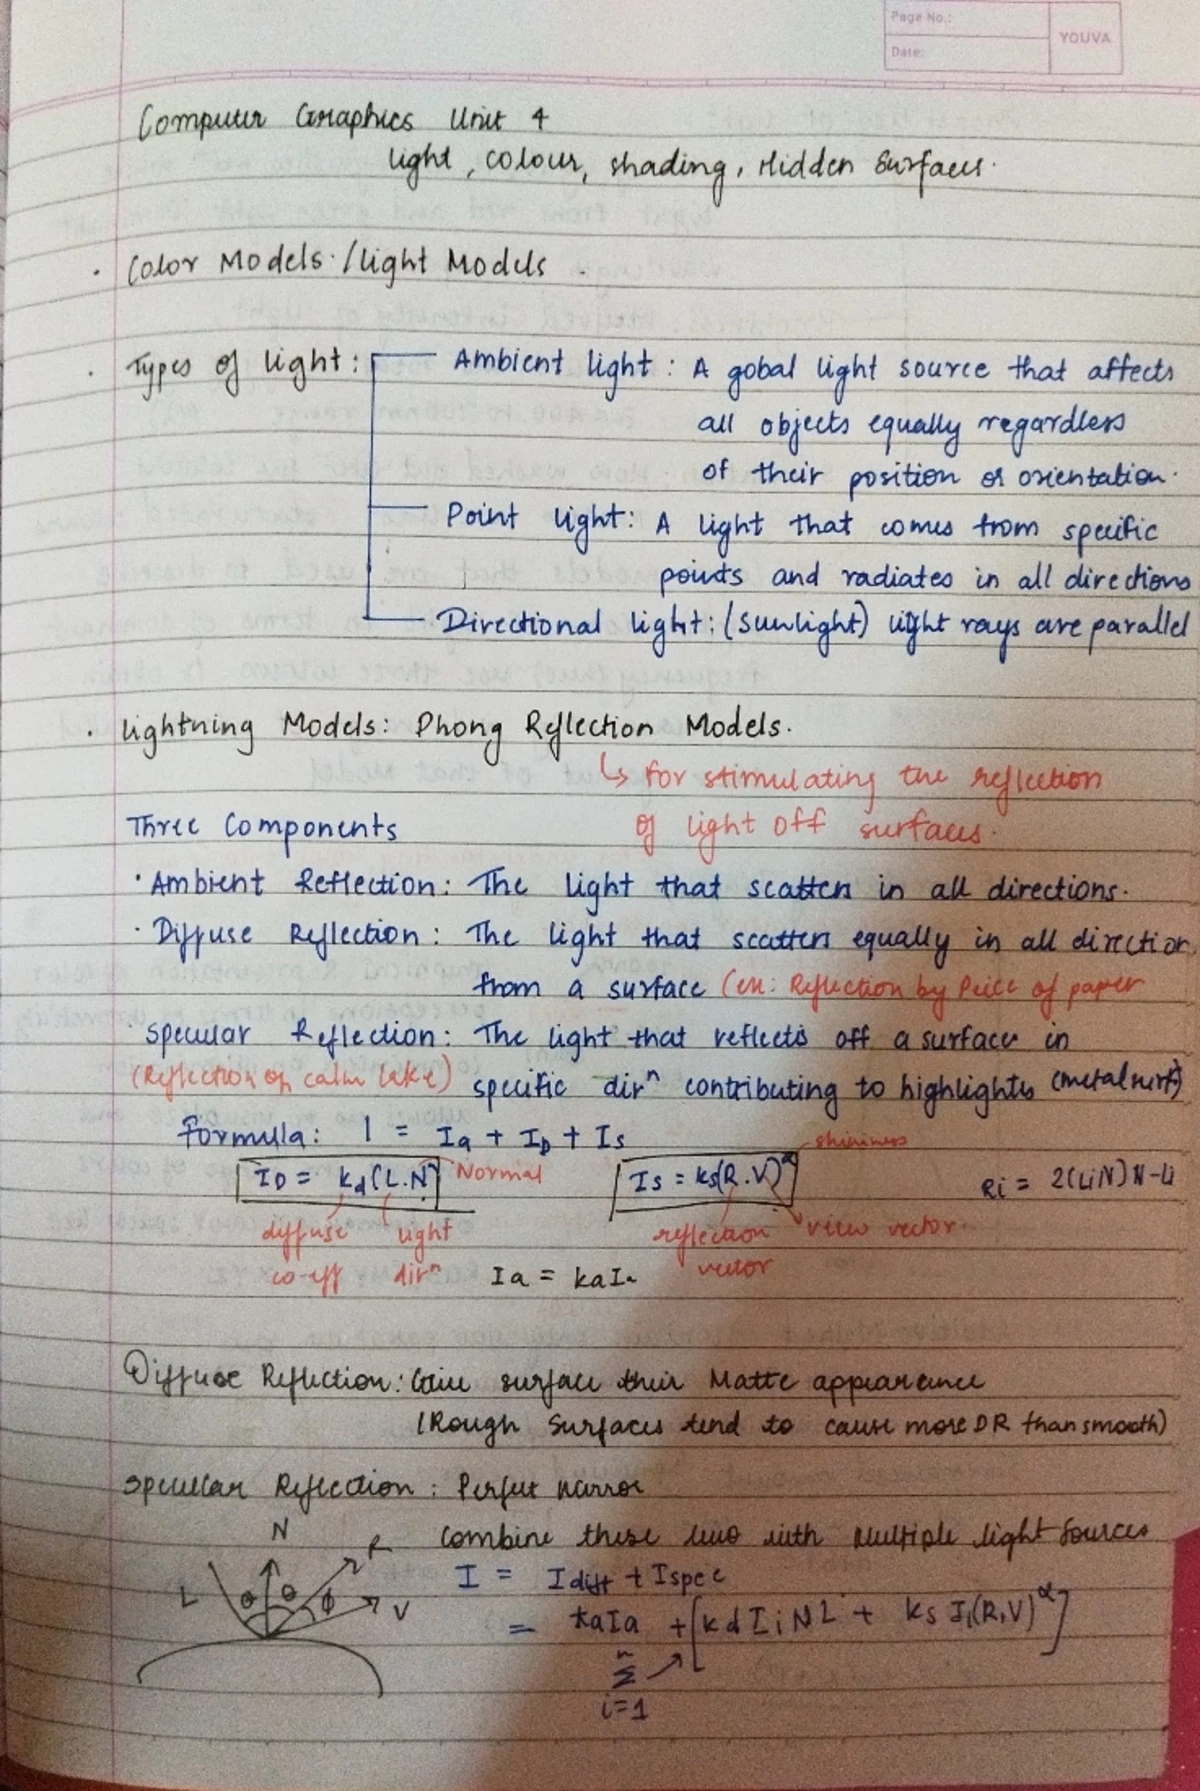 Page No.:
Date:
YOUVA
Computer Graphics Unit 4
light, colour, shading, Hidden Surfaces.
. Color Models. / light Models .
. Types of light: Ambient light : A gobal light source that affects
all objects equally regardless
of their position or orientation.
Point light: A light that comes from specific
points and radiates in all directions
Directional light: (sunlight) light rays are parallel
. lightning Models: Phong Reflection Models.
↳ for stimulating the reflection
of light off surfaces.
Three Components
· Ambient Reflection: The light that scatters in all directions.
· Diffuse Reflection: The light that scatters equally in all direction
from a surface (ex: Reflection by Peice of paper
· Specular Reflection: The light that reflects off a surface in
(Reflection of calm lake) specific dirⁿ contributing to highlights
Formula: I = Ia + ID + Is
shininess
ID = kd(L.N) Normal
Is = ks(R.V)^α
Ri = 2(LiN)N-Li
diffuse light
reflection view vector.
co-eff dirⁿ
vector
Ia = kaIa
Diffuse Reflection: Give surface their Matte appearance
(Rough Surfaces tend to cause more DR than smooth)
Specular Reflection : Perfect
N
R
combine these two with Multiple light Sources
L θ θ φ V
I = Idiff + Ispec
= kaIa + [kd Ii N L + ks Ii(R.V)^α]
n
Σ
i=1